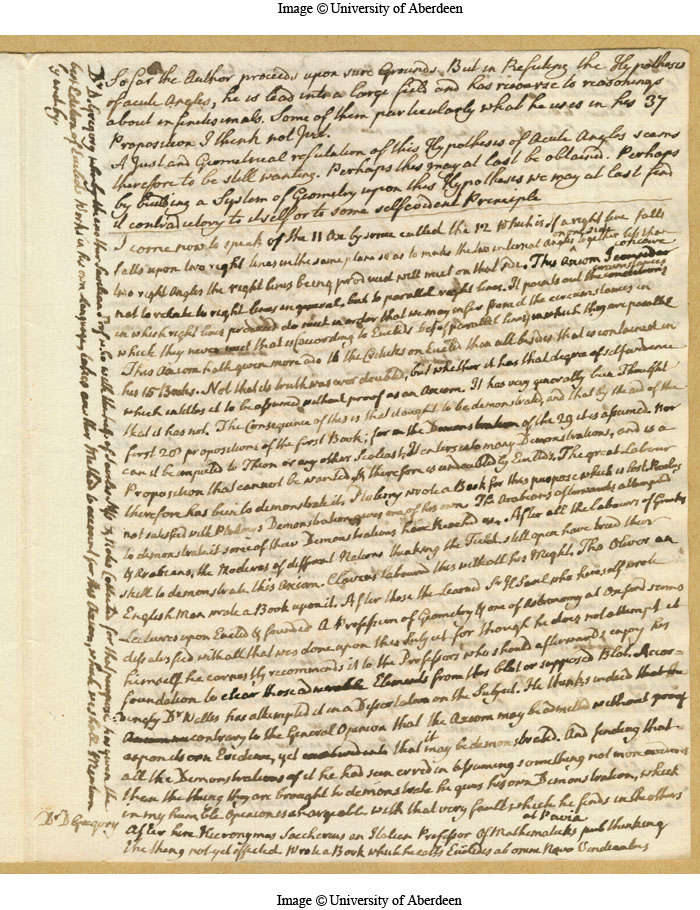 Image © University of Aberdeen
So far the Author proceeds upon sure Grounds. But in Refuting the Hypotheses
of acute Angles, he is lead into a large field and has recourse to reasonings
about infinitesimals. Some of them particularly what he uses in his 37
Proposition I think not Just.
A Just and Geometrical refutation of this Hypotheses of Acute Angles seems
therefore to be still wanting. Perhaps this may at last be obtained. Perhaps
by building a System of Geometry upon this Hypotheses we may at last find
it contradictory to itself or to some selfevident Principle
I come now to speak of the 11 Ax by some called the 12 Which is if a right line falls
falls upon two right lines in the same plane so as to make the two internal Angles on one side together less than
two right Angles the right lines being produced will meet on that side. This Axiom I consider conceive
not to relate to right lines in general but to parallel right lines. It points out the conditions circumstances
in which right lines produced do meet in order that we may infer from it the circumstances in
which they never meet that is (according to Euclids def of parallel lines) in which they are parallel
This Axiom hath given more ado to the Criticks on Euclid than all besides that is contained in
his 15 Books. Not that its truth was ever doubted, but whether it has that degree of selfevidence
which intitles it to be assumed without proof as an Axiom. It has very generally been Thought
that it has not. The Consequence of this is that it ought to be demonstrated, and that by the aid of the
first 28 propositions of the first Book; for in the Demonstration of the 29 it is assumed. Nor
can it be imputed to Theon or any other Scoliast, It enters into many Demonstrations, and is a
Proposition that cannot be wanted, & therefore is undoubtedly Euclids. The great Labour
therefore has been to demonstrate it. Ptolemy wrote a Book for this purpose which is lost Proclus
not satisfied with Ptolemys Demonstration gives one of his own. The Arabians afterwards attempted
to demonstrate it some of their Demonstrations have Reached us. After all the Labours of Greeks
& Arabians, the Moderns of different Nations thinking the Field still open have tried their
skill to demonstrate this Axiom. Clavius laboured this with all his Might. Tho Oliver an
English Man wrote a Book upon it. After those the Learned Sr H Savil who himself wrote
Lectures upon Euclid & founded a Professum of Geometry & one of Astronomy at Oxford seems
dissatisfied with all that was done upon this Subject for though he does not attempt it
himself he earnestly recommends it to the Professors who should afterwards enjoy his
foundation to clear those admirable Elements from this blot or supposed Blot. Accor-
dingly Dr Wallis has attempted it in a Dissertation on the Subject. He thinks indeed that the
contrary to the General Opinion that the Axiom may be admitted without proof
upon its own Evidence, yet that it may be demonstrated. And finding that
all the Demonstrations of it he had seen erred in assuming something not more evident
than the thing they are brought to demonstrate he gives his own Demonstration, which
in my humble Opinion is chargeable with that very fault which he finds in the others
After him Hieronymus Saccherius an Italian Professor of Mathematicks at Pavia thinking
the thing not yet effected Wrote a Book which he calls Euclides ab omni Nævo Vindicatus
Dr D Gregory who hath another Savilian Prof who with the help of
best Edition of Euclids Works in his own language, takes another Method to account for this Axiom, which we shall Mention
by and by.
Dr D Gregory
Image © University of Aberdeen